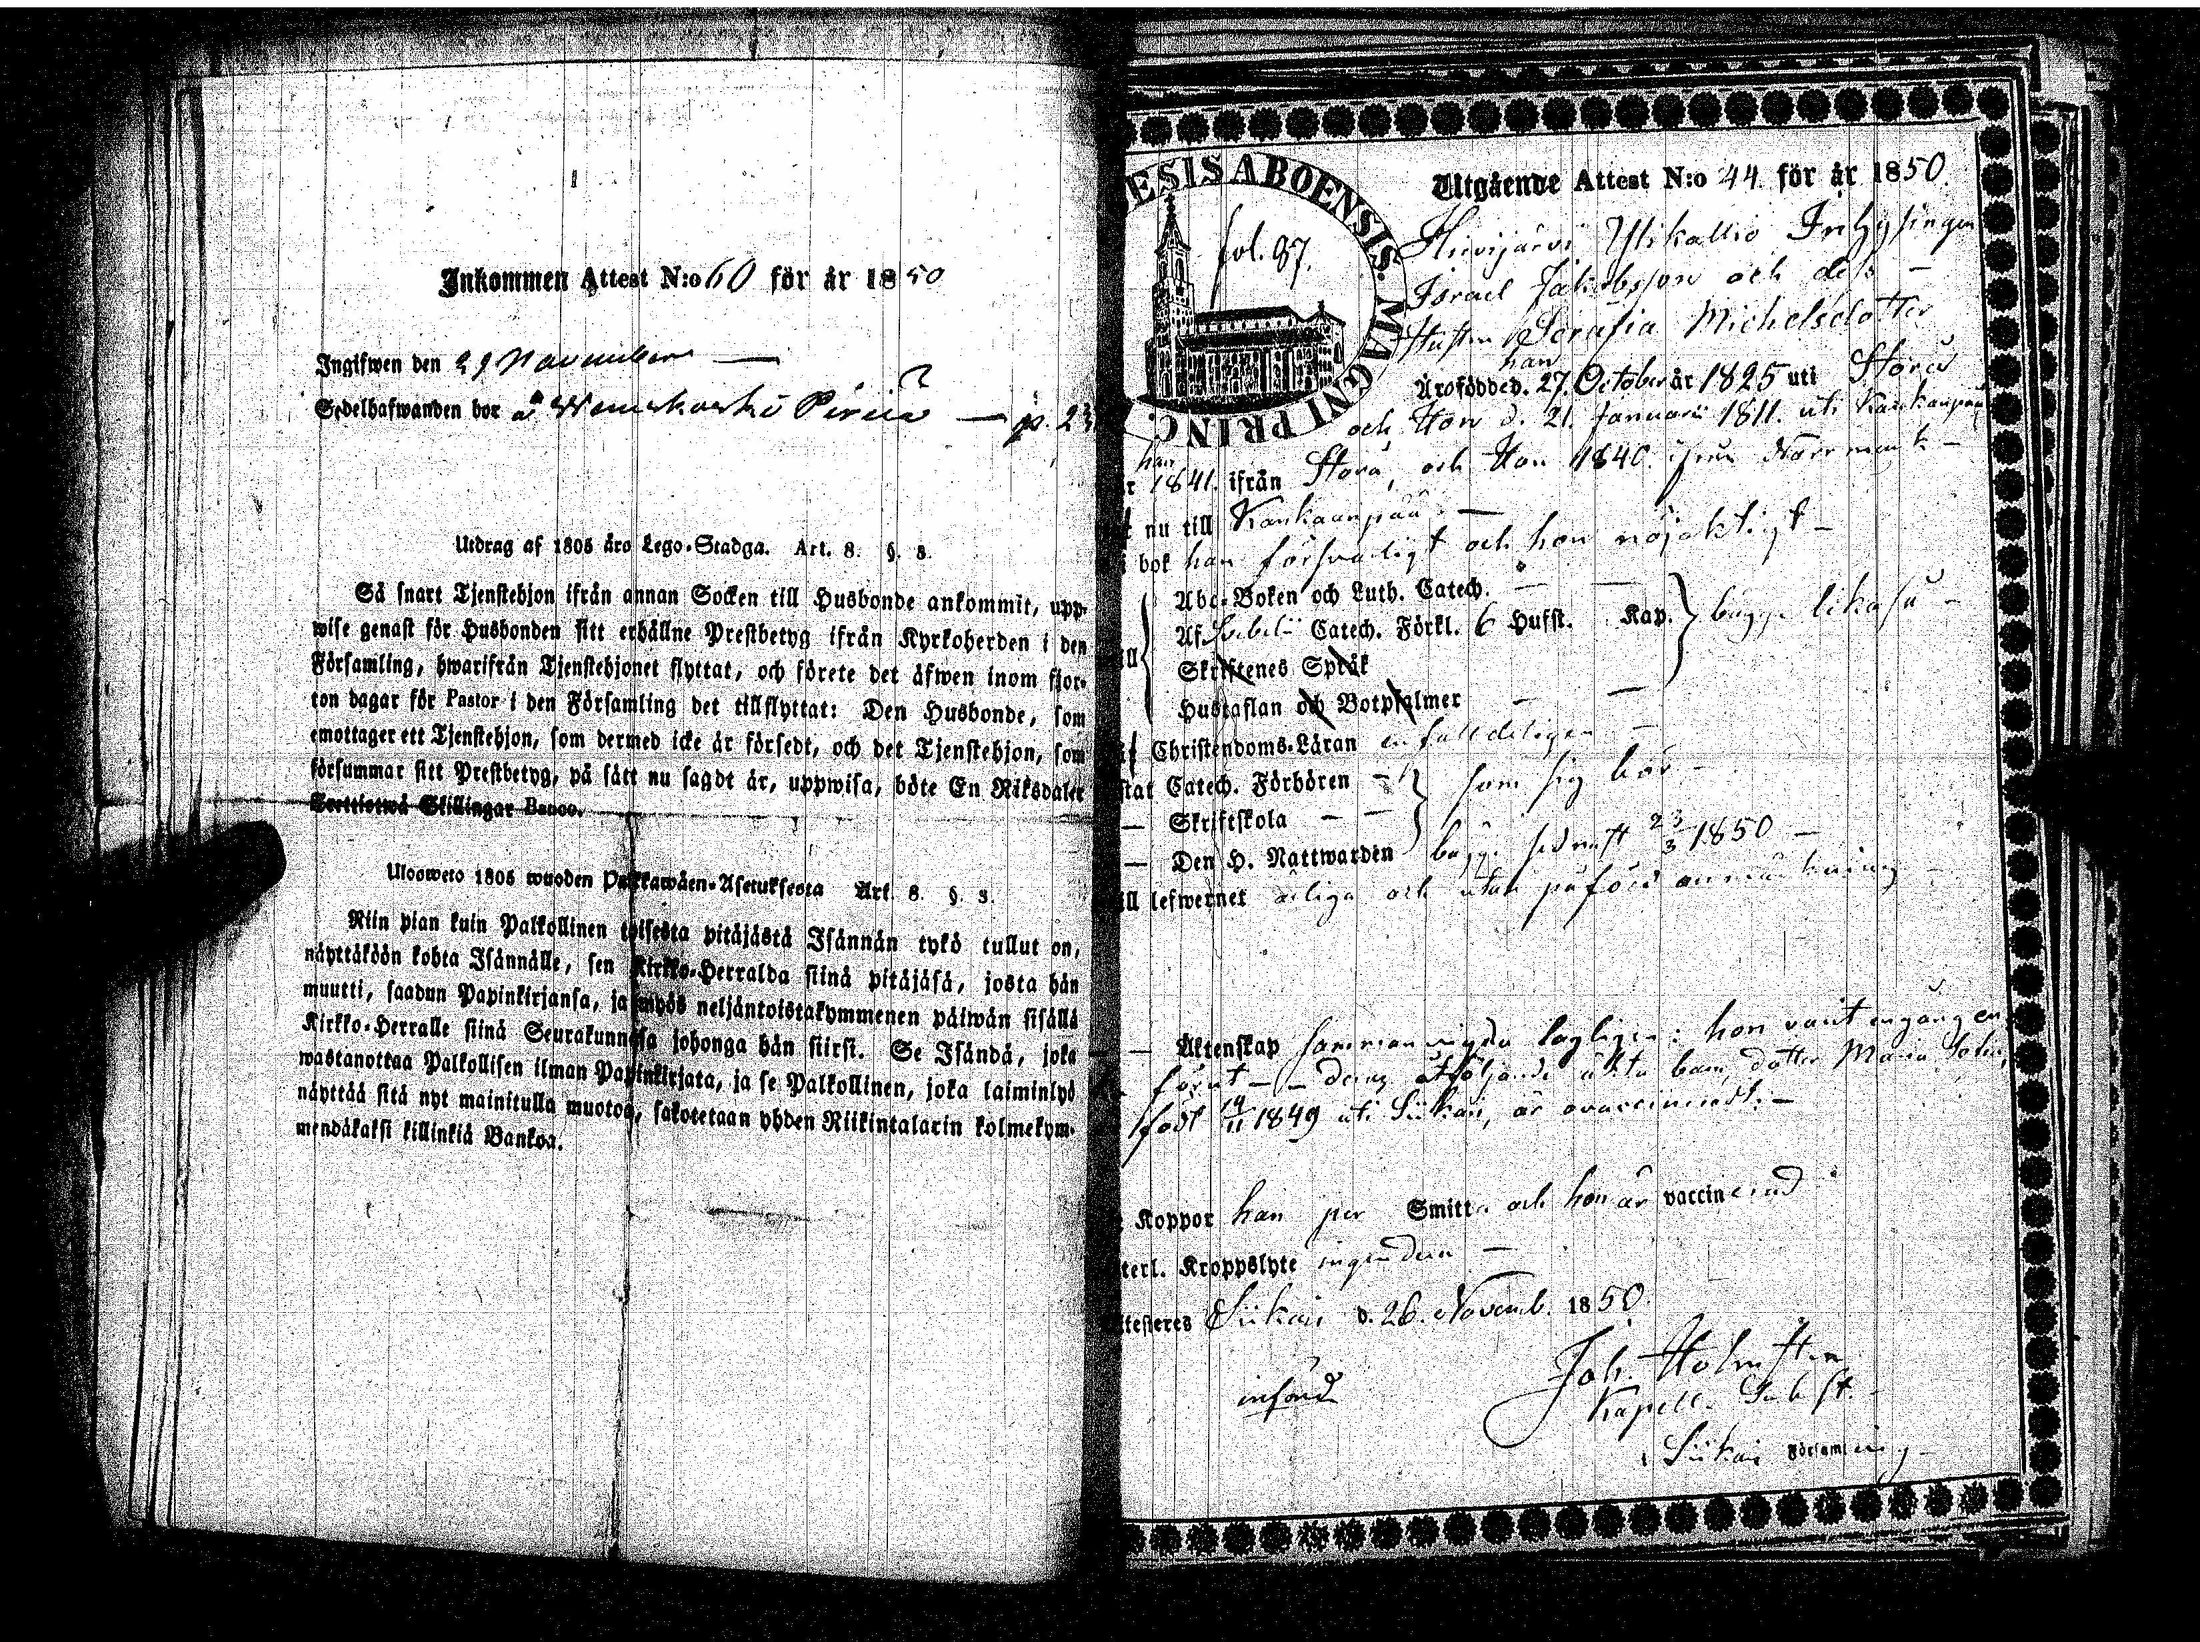 Inkommen Attest N:o 60 för år 1850
Ingifwen den 29 November
Sedelhafwanden bor å
Utdrag af 1805 års Lego-Stadga. Art. 8. §. 3.
Så snart Tjenstehjon ifrån annan Socken till Husbonde ankommit, upp-
wise genast för Husbonden sitt erhållne Prestbetyg ifrån Kyrkoherden i den
Församling, hwarifrån Tjenstehjonet flyttat, och förete det äfwen inom fjor-
ton dagar för Pastor i den Församling det tillflyttat: Den Husbonde, som
emottager ett Tjenstehjon, som dermed icke är försedt, och det Tjenstehjon, som
försummar sitt Prestbetyg, på sätt nu sagdt är, uppwisa, böte En Riksdaler
Trettiotwå Skillingar Banco.
Ulosweto 1805 wuoden Palkawäen-Asetuksesta Art. 8. §. 3.
Niin pian kuin Palkollinen toisesta pitäjästä Isännän tykö tullut on,
näyttäköön kohta Isännälle, sen Kirkko-Herralda siinä pitäjäsä, josta hän
muutti, saadun Papinkirjansa, ja myös neljäntoistakymmenen päiwän sisällä
Kirkko-Herralle siinä Seurakunnasa johonga hän siirsi. Se Isändä, joka
wastanottaa Palkollisen ilman Papinkirjata, ja se Palkollinen, joka laiminlyö
näyttää sitä nyt mainitulla muotoa, sakotetaan yhden Riikintalarin kolmekym-
mendäkaksi killinkiä Bankoa.
ESIS ABOENSIS. MAGNI PRINC.
fol. 97.
Utgående Attest N:o 44 för år 1850.
Ylikallio Inhysingen
Israel Jakobsson och dess
Hustru Serafia Michelsdotter
han
Äro födde d. 27. October år 1825 uti Storå
och Hon d. 21. Januarii 1811. uti Kankaanpää
han
1841. ifrån Storå, och Hon 1840. ifrån Norrmark
nu till Kankaanpää
i bok han försvarligt och hon nöjaktigt
Abc-Boken och Luth. Catech.
Af Svebelii Catech. Förkl. 6 Hufst. Kap. begge likaså
Skriftenes Språk
Hustaflan och Botpsalmer
Christendoms-Läran enfalldeligen
Catech. Förhören
Skriftskola
som sig bör
Den H. Nattwarden begge sednast 23/3 1850
lefwernet ärliga och utan påförd anmärkning
Äktenskap sammanvigda lagligen: hon varit en gång enka
förut - deras åtföljande äkta barn, dotter Maria
född 19/11 1849 uti Siikais, är ovaccinerad.
Koppor han per Smitta och hon är vaccinerad
Kroppslyte ingendera
Siikais d. 26. Novemb. 1850.
Joh. Holmsten
Kapell. Subst.
i Siikais Församling
införd